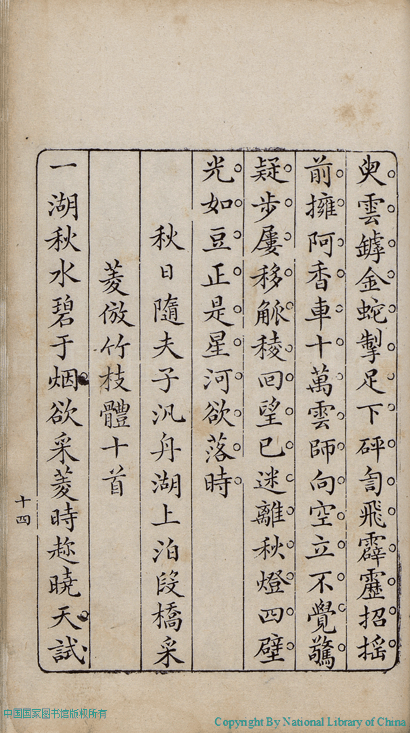 臾雲罅金蛇掣足下砰訇飛霹靂招搖
前擁阿香車十萬雲師向空立不覺驚
疑步屢移觚稜回望已迷離秋燈四壁
光如豆正是星河欲落時
秋日隨夫子汎舟湖上泊段橋采
菱倣竹枝體十首
一湖秋水碧于烟欲采菱時趂曉天試
十四
中国国家图书馆版权所有
Copyright By National Library of China